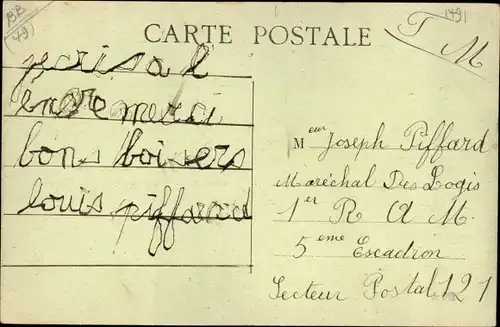 BB
(49)
1491
T M
CARTE POSTALE
merci
bons boisers
louis piffard
Meur Joseph Piffard
Maréchal Des Logis
1er R A M.
5eme Escadron
Secteur Postal 121